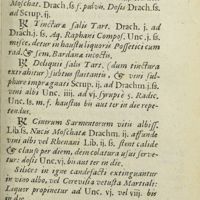 Moschat. Drach. ss. f. pulvis. Dosis Drach. ss.
ad Scrup. ij.
℞ Tinctura salis Tart. Drach. j. ad
Drach. j. ss. Aq. Raphani Compos. Unc. j. ss.
misce, detur in haustu liquoris Posseticicum
rad. & sem. Bardanæ incoctis.
℞ Deliquii salis Tart. (dum tinctura
extrahitur) subtus stantis, & veni sul-
phure impregnati Scrup. ij. ad Drachm. j. ss.
vini albi Unc. iiij. ad vj. syrupi 5. Radic.
Unc. ss. m. f. haustus bis aut ter in die repe-
tendus.
℞ Cinerum Sarmentorum vitis albiss.
Lib. ss. Nucis Moschatæ Drachm. ij. affunde
vini albi vel Rhenani Lib. ij. ss. stent calidè
& clausè per diem, dein colatura usui serve-
tur: dosis Unc. vj. bis aut ter in die.
Silices in igne candefacti extinguantur
in vino albo, vel Cerevisia vetusta Martiali:
Liquor propinetur ad Unc. vj. vel viij. bis
in die.